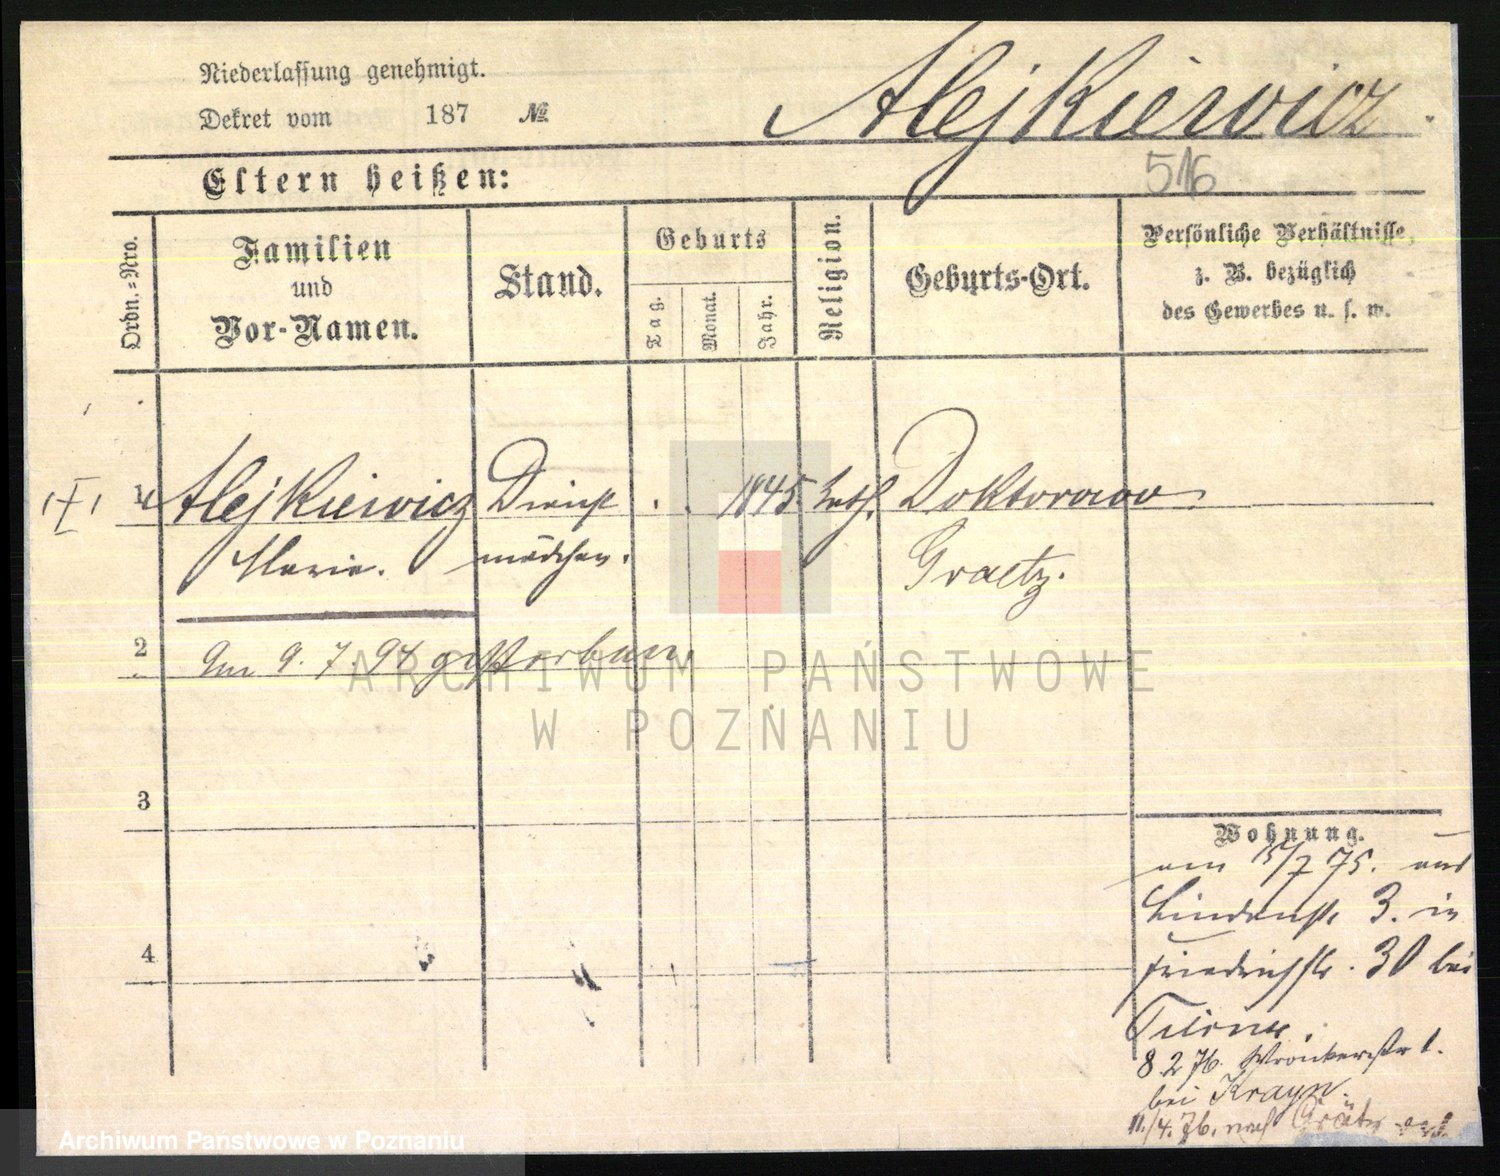 Niederlassung genehmigt.
Dekret vom 187 №
Alejkiewicz.
516
Eltern heißen:
Ordn.-Nro.
Familien
und
Vor-Namen.
Stand.
Geburts
Tag.
Monat.
Jahr.
Religion.
Geburts-Ort.
Persönliche Verhältnisse,
z. B. bezüglich
des Gewerbes u. s. w.
1 Alejkiewicz Dienst . . 1845. kath. Doktorowo
Marie. mädchen. Graetz.
2 Am 9. 7. 94 gestorben.
ARCHIWUM PAŃSTWOWE
W POZNANIU
3
4
Wohnung.
am 15/7 75. aus
Lindenstr. 3. in
Friedrichstr. 30 bei
8 2 76. Wronkerstr 1.
bei Krayn.
11./4. 76. nach Grätz
Archiwum Państwowe w Poznaniu